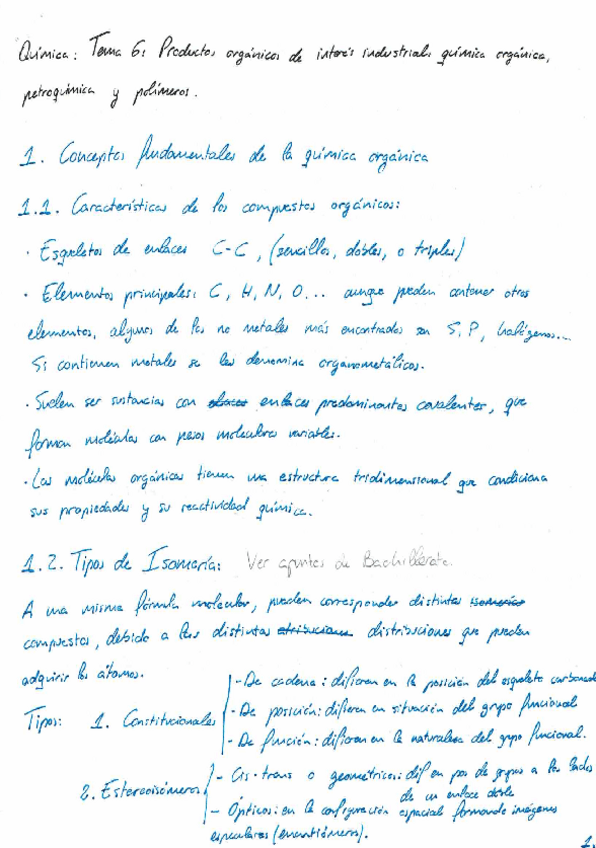 Química: Tema 6: Productos orgánicos de interés industrial: química orgánica,
petroquímica y polímeros.
1. Conceptos fundamentales de la química orgánica
1.1. Características de los compuestos orgánicos:
· Esqueletos de enlaces C-C, (sencillos, dobles, o triples)
· Elementos principales: C, H, N, O... aunque pueden contener otros
elementos, algunos de los no metales más encontrados son S, P, halógenos...
Si contienen metales se les denomina organometálicos.
· Suelen ser sustancias con enlaces predominantes covalentes, que
forman moléculas con pesos moleculares variables.
· Las moléculas orgánicas tienen una estructura tridimensional que condiciona
sus propiedades y su reactividad química.
1.2. Tipos de Isomería: Ver apuntes de Bachillerato.
A una misma fórmula molecular, pueden corresponder distintos isoméricos
compuestos, debido a las distintas distribuciones que pueden
adquirir los átomos.
Tipos: 1. Constitucionales
- De cadena: difieren en la posición del esqueleto carbonado
- De posición: difieren en situación del grupo funcional
- De función: difieren en la naturaleza del grupo funcional.
2. Estereoisómeros
- Cis-trans o geométricos: dif en pos de grupos a los lados
de un enlace doble
- Ópticos: en la configuración espacial formando imágenes
especulares (enantiómeros).
1.